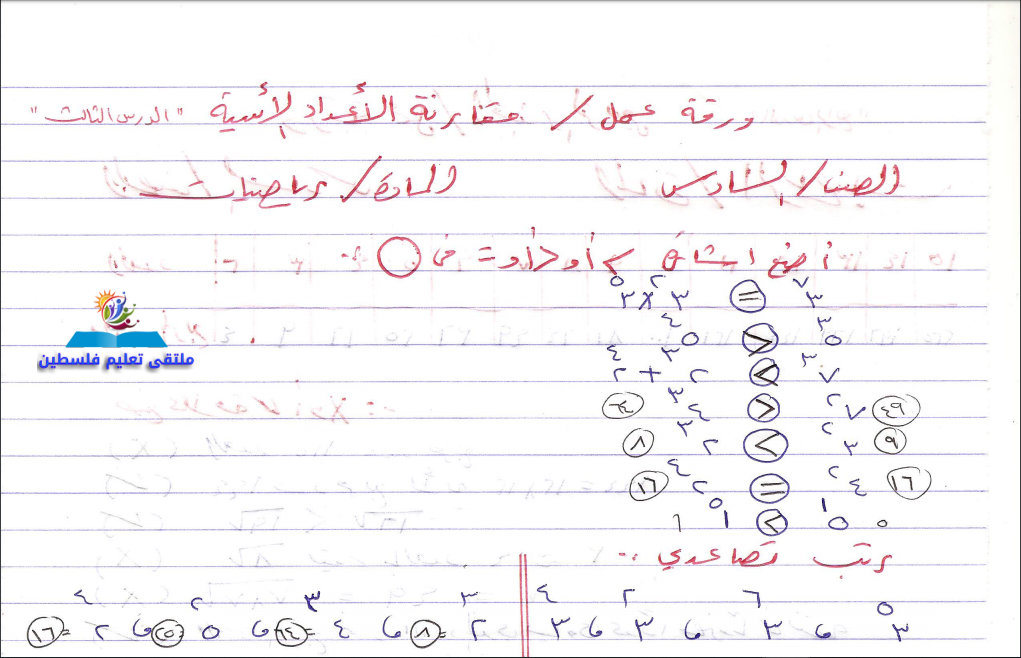 ورقة عمل / مقارنة الأعداد الأسية "الدرس الثالث"
الصف / السادس المادة / رياضيات
أضع اشارة > أو < أو = في ○ :-
٣^٧ = ٣^٢ × ٣^٥
٥^٣ > ٥^٤
٧^٣ < ٢^٣ + ٢^٤
٤٩ ٧^٢ > ٤^٣ ٦٤
٩ ٣^٢ < ٢^٣ ٨
١٦ ٤^٢ = ٢^٤ ١٦
٥ ٥^١ < ١^٥ ١
رتب تصاعدي :-
٣^٥ ، ٣^٦ ، ٣^٢ ، ٣^٤
٢^٣ = ٨ ، ٤^٣ = ٦٤ ، ٥^٢ = ٢٥ ، ٢^٤ = ١٦
ملتقى تعليم فلسطين